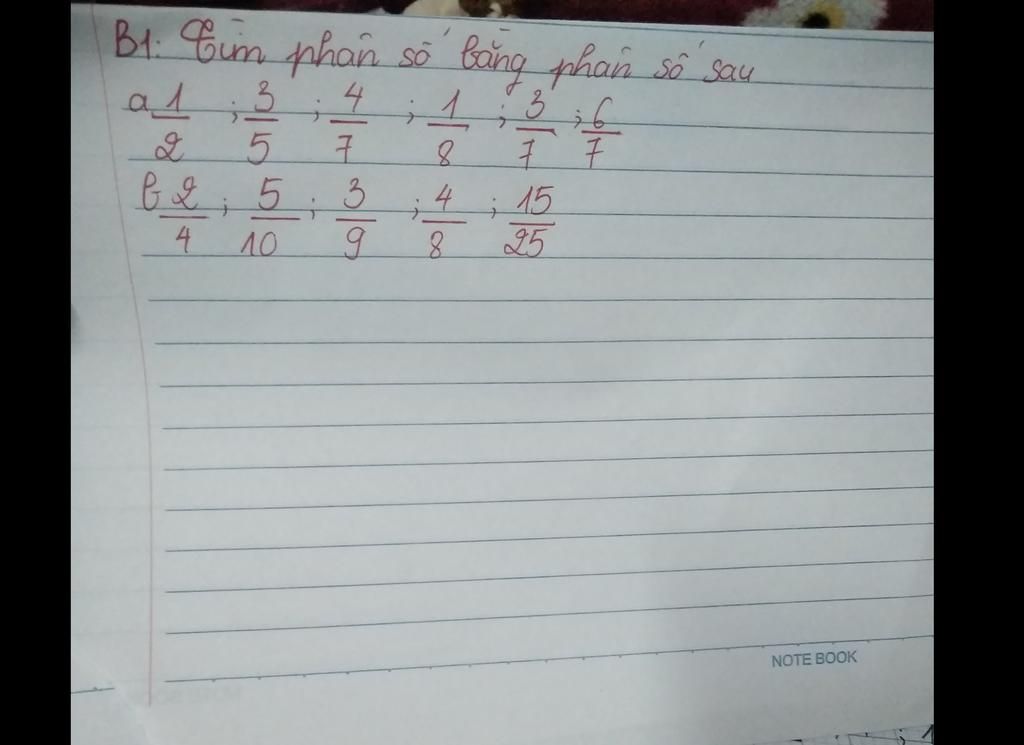 B1: Tìm phân số bằng phân số sau
a 1/2 ; 3/5 ; 4/7 ; 1/8 ; 3/7 ; 6/7
b 2/4 ; 5/10 ; 3/9 ; 4/8 ; 15/25
NOTE BOOK